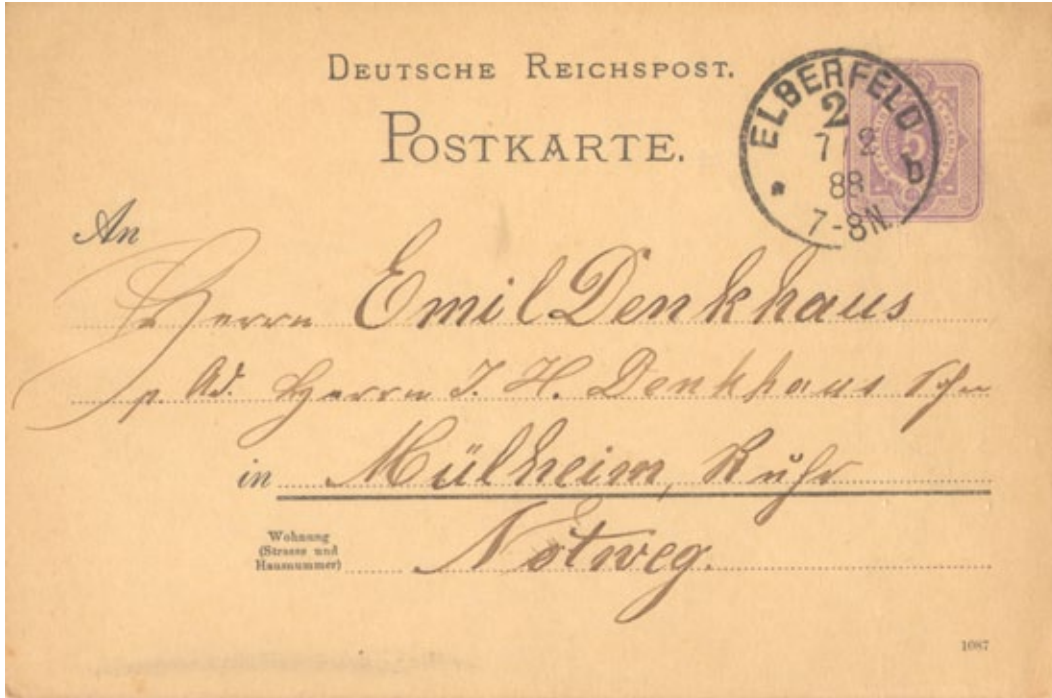 DEUTSCHE REICHSPOST.
POSTKARTE.
ELBERFELD
2
7 / 2
88
b
7-8N.
5
An
Herrn Emil Denkhaus
p. Ad. Herrn J. H. Denkhaus
in Mülheim, Ruhr
Wohnung
(Strasse und
Hausnummer)
Notweg.
1087